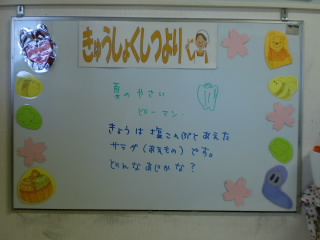 きゅうしょくしつより
夏のやさい
ピーマン
きょうは塩こんぶとあえた
サラダ(あえもの)です。
どんなあじかな?